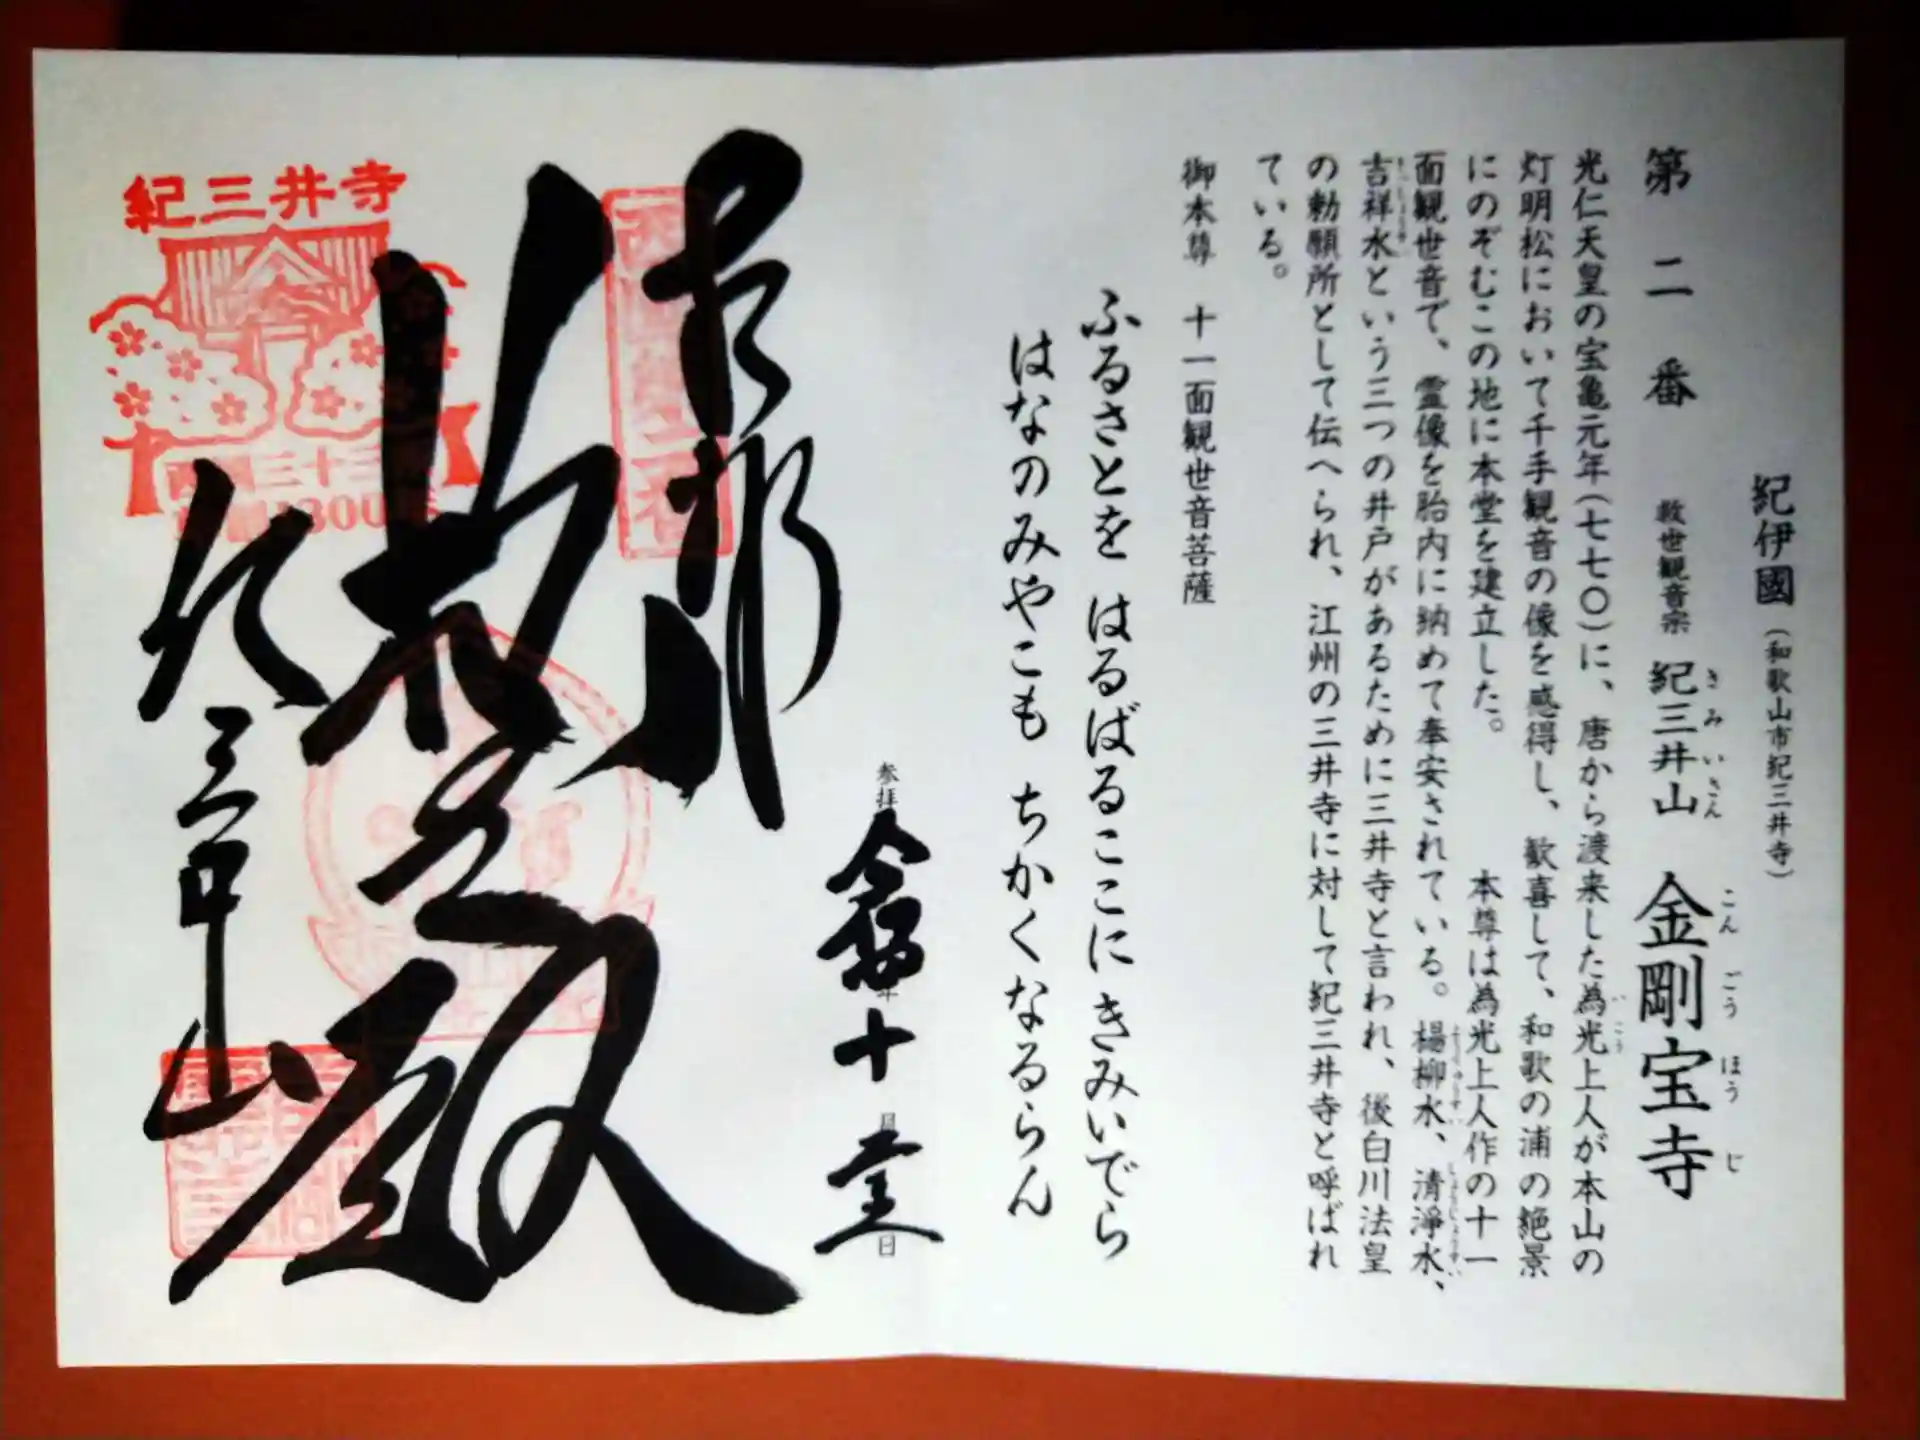 紀伊國(和歌山市紀三井寺)
第二番 救世観音宗 紀三井山 金剛宝寺
きみいさん こんごうほうじ
光仁天皇の宝亀元年(七七〇)に、唐から渡来した為光上人が本山の
いこう
灯明松において千手観音の像を感得し、歓喜して、和歌の浦の絶景
にのぞむこの地に本堂を建立した。　本尊は為光上人作の十一
面観世音で、霊像を胎内に納めて奉安されている。楊柳水、清浄水、
吉祥水という三つの井戸があるために三井寺と言われ、後白川法皇
の勅願所として伝へられ、江州の三井寺に対して紀三井寺と呼ばれ
ている。
御本尊 十一面観世音菩薩
ふるさとを はるばるここに きみいでら
はなのみやこも ちかくなるらん
参拝 令和 年 十 月 日
奉拝
救世殿
紀三井山
紀三井寺
三十三
1300年